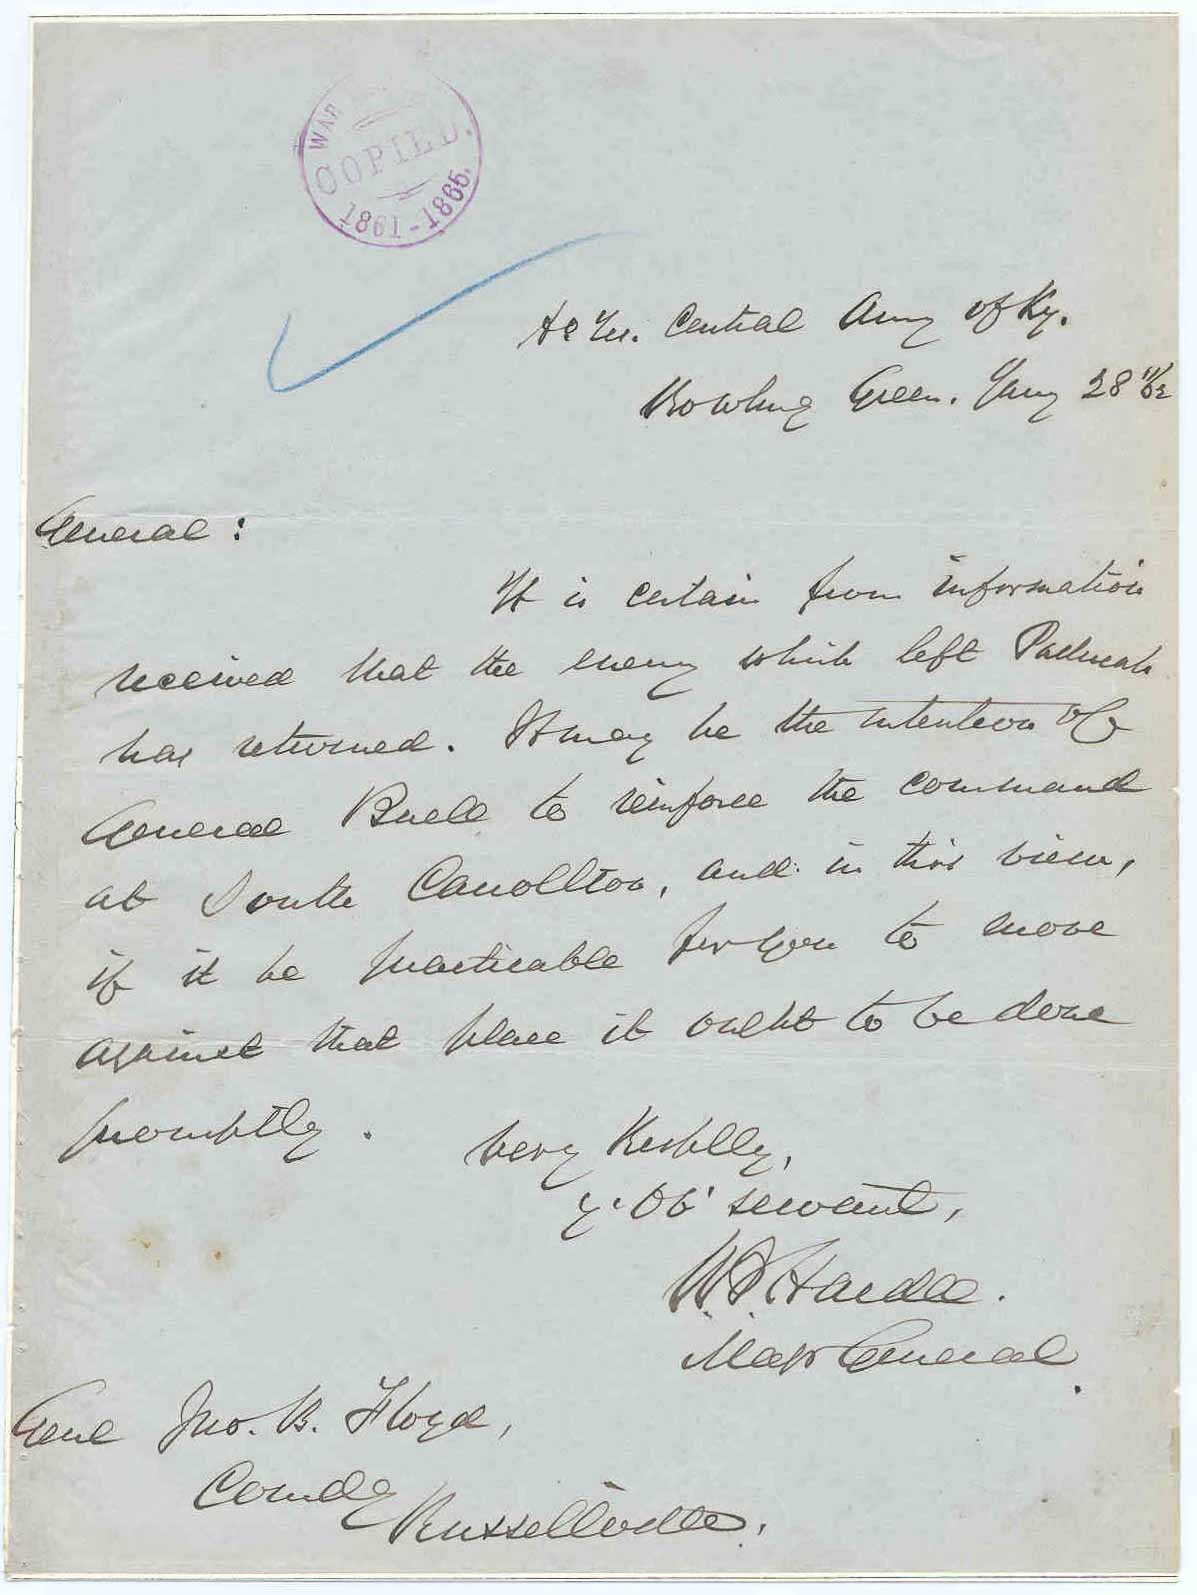 WAR
COPIED.
1861-1865.
Hd Qrs. Central Army of Ky.
Bowling Green. Jany 28 "/62
General:
It is certain from information
received that the enemy which left Paducah
has returned. It may be the intention of
General Buell to reinforce the command
at South Carollton, and in this view,
if it be practicable for you to move
against that place it ought to be done
promptly.
Very Respblly,
y. Ob' servant,
W. J. Hardee.
Major General.
Genl Jno. B. Floyd,
Comdg
Russellville.